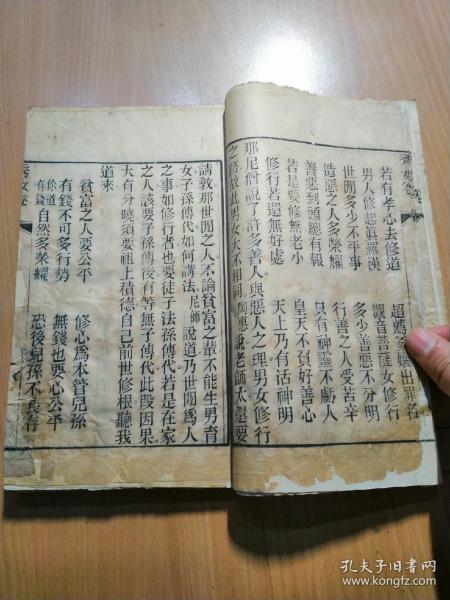 秀女卷
若有孝心去修道 超 多孃出罪名
男人修起真羅漢 觀音菩薩女修行
世間多少不平事 多少善惡不分明
造惡之人多榮耀 行善之人受苦辛
善惡到頭總有報 只有神靈不虧人
若是要修無老小 皇天不負好善心
修行若還無好處 天上乃有活神明
那尼僧說了許多善人與惡人之理男女修行
之 故此男女大不相同 惠說老師太還要
請教那世間之人不論貧富之輩不能生男育
女子孫傳代如何講法尼師說道乃世間為人
之事如修行者也要徒子法孫傳代若是在家
之人該要子孫傳後有等無子傳代此段因果
大有分曉須要祖上積德自己前世修根聽我
道來
貧富之人要公平 修心為本管兒孫
有錢不可多行勢 無錢也要心公平
你道有錢自然多榮耀 恐後兒孫不長存
秀女卷
孔夫子旧书网
www.kongfz.com